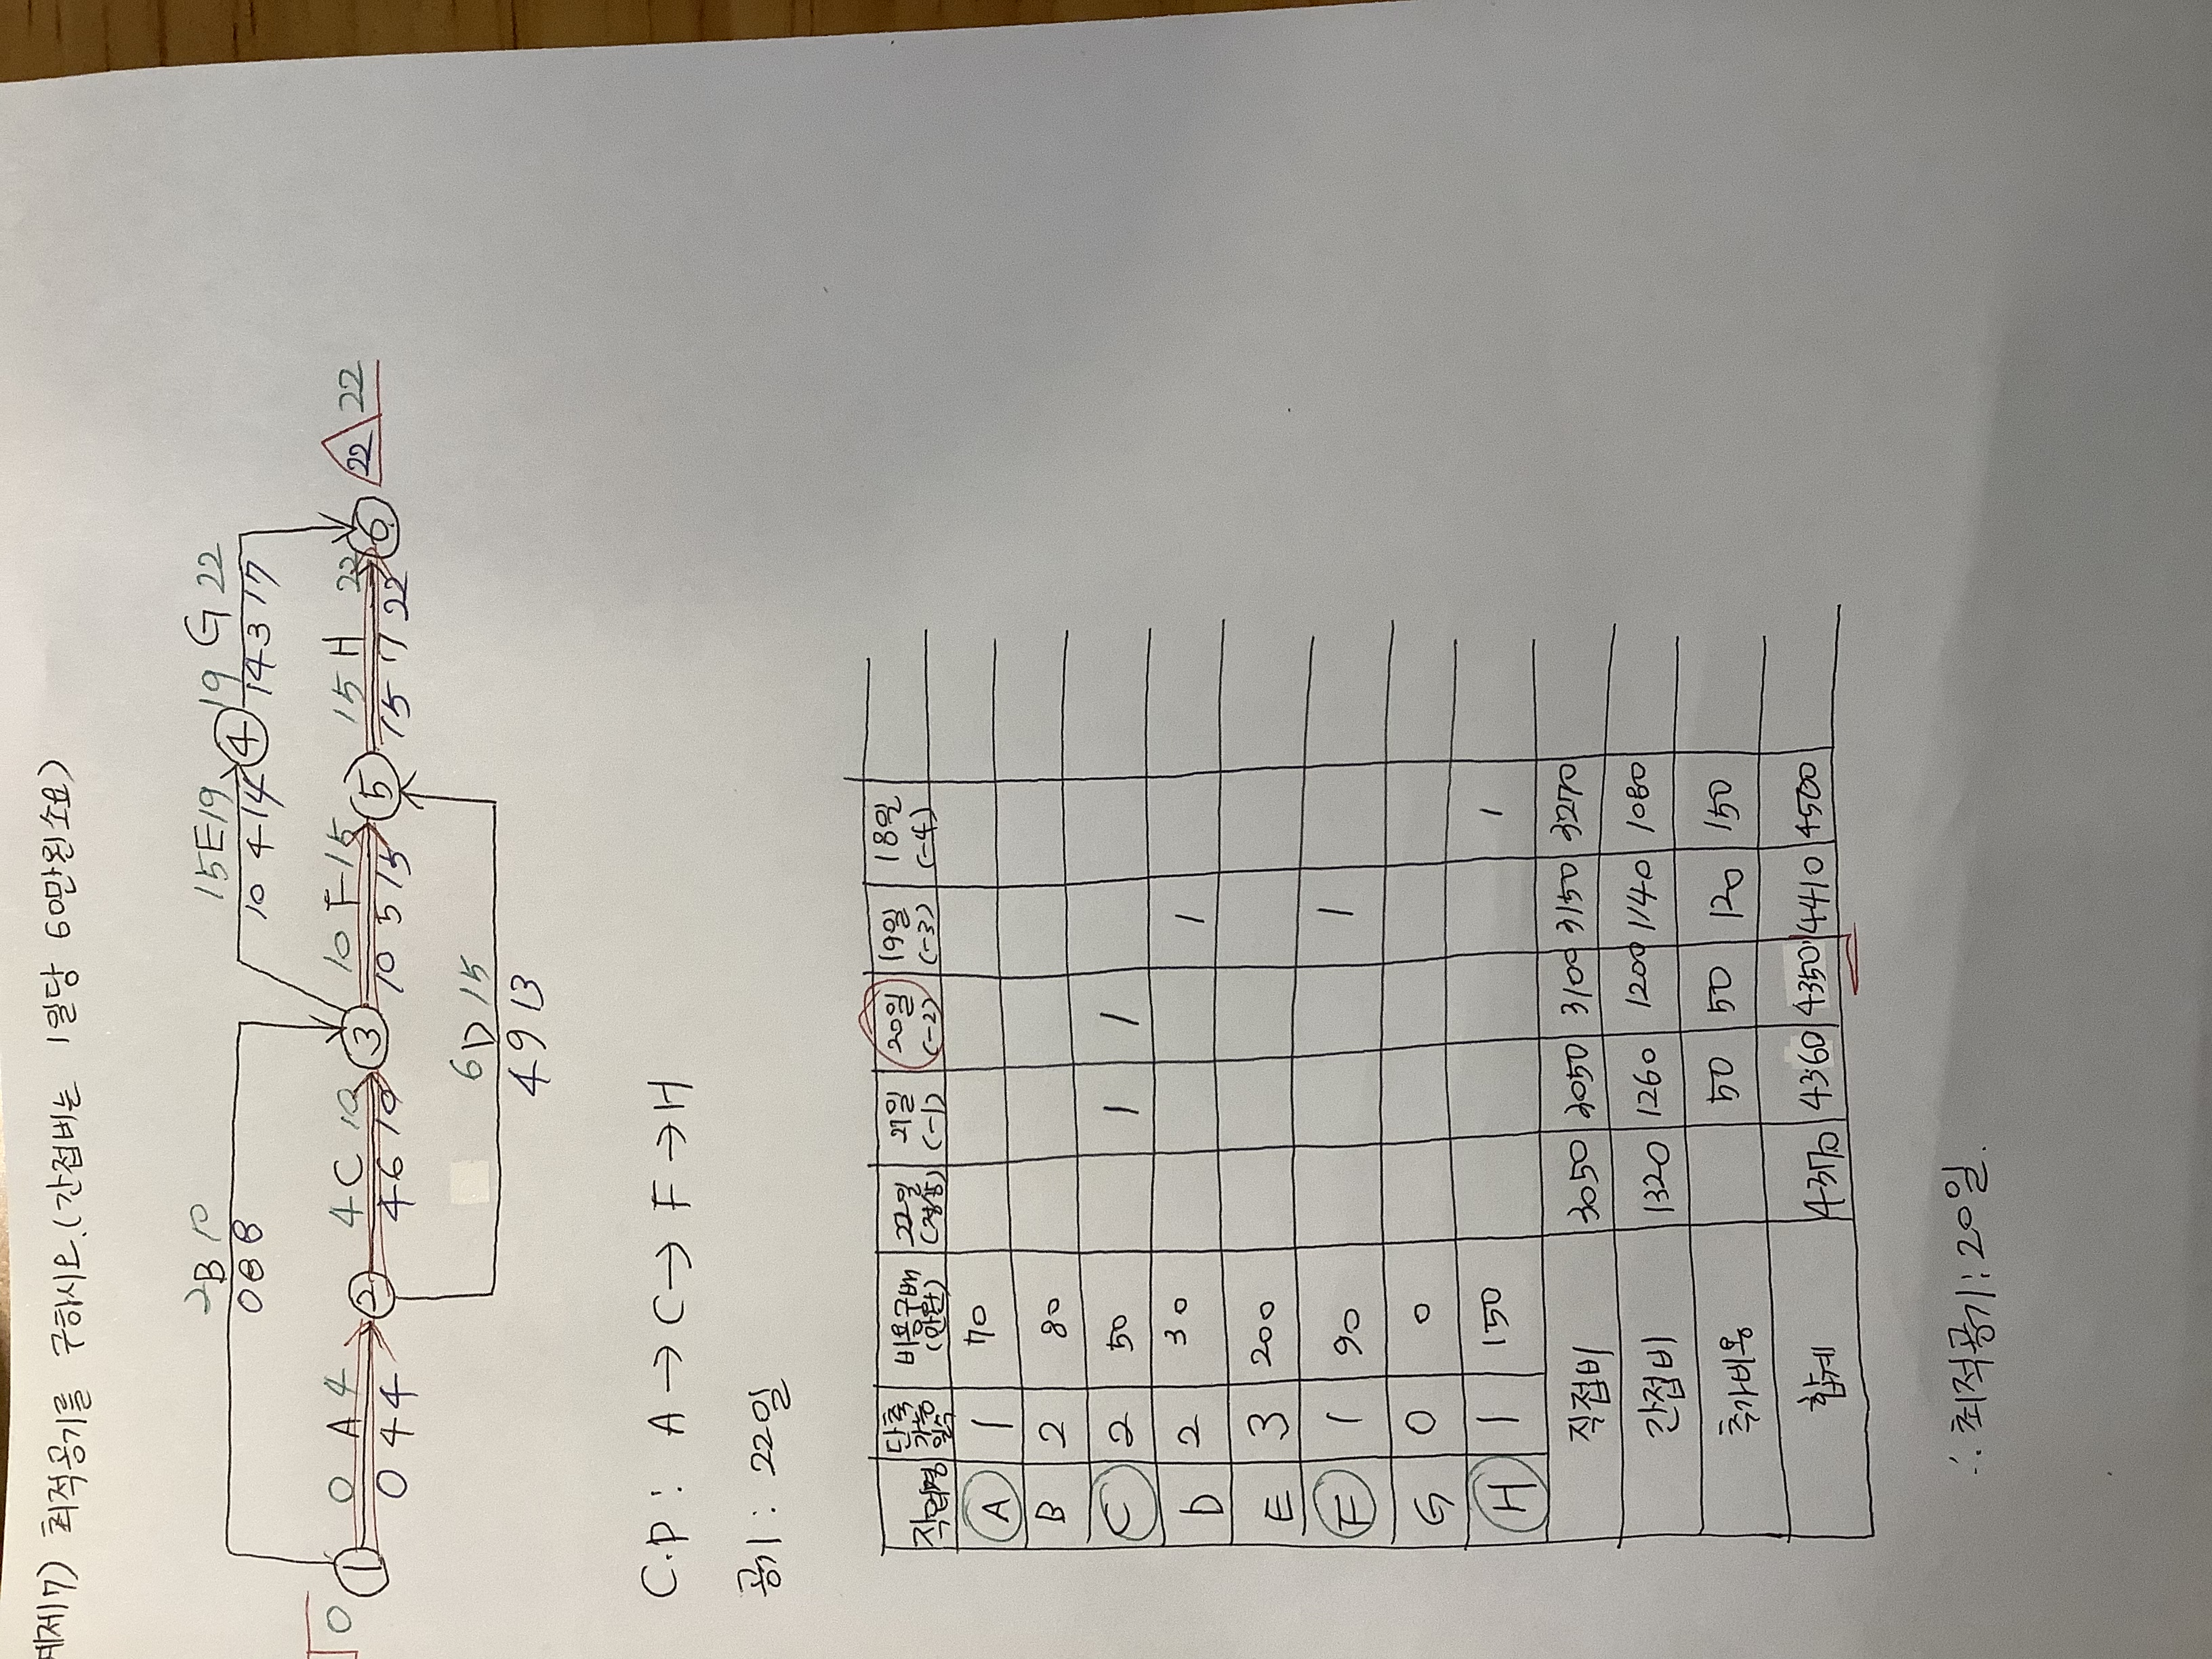 예제17) 최적공기를 구하시오.(간접비는 1일당 60만원소요)
2B10
0 8 8
15E19 19 G 22
10 4 14 ④ 14 3 17
0 0 A 4 4 C 10 10 F 15 15 H 22 22 22
① 0 4 4 ② 4 6 10 ③ 10 5 15 ⑤ 15 7 22 ⑥
6D 15
4 9 13
C.P : A → C → F → H
공기 : 22일
작업명 단축가능일수 비용구배(만원) 22일(정상) 21일(-1) 20일(-2) 19일(-3) 18일(-4)
A 1 70
B 2 80
C 2 50 1 1
D 2 30 1
E 3 200
F 1 90 1
G 0 0
H 1 150 1
직접비 3050 3050 3100 3150 3270
간접비 1320 1260 1200 1140 1080
추가비용 50 50 120 150
합계 4370 4360 4350 4410 4500
∴ 최적공기 : 20일.